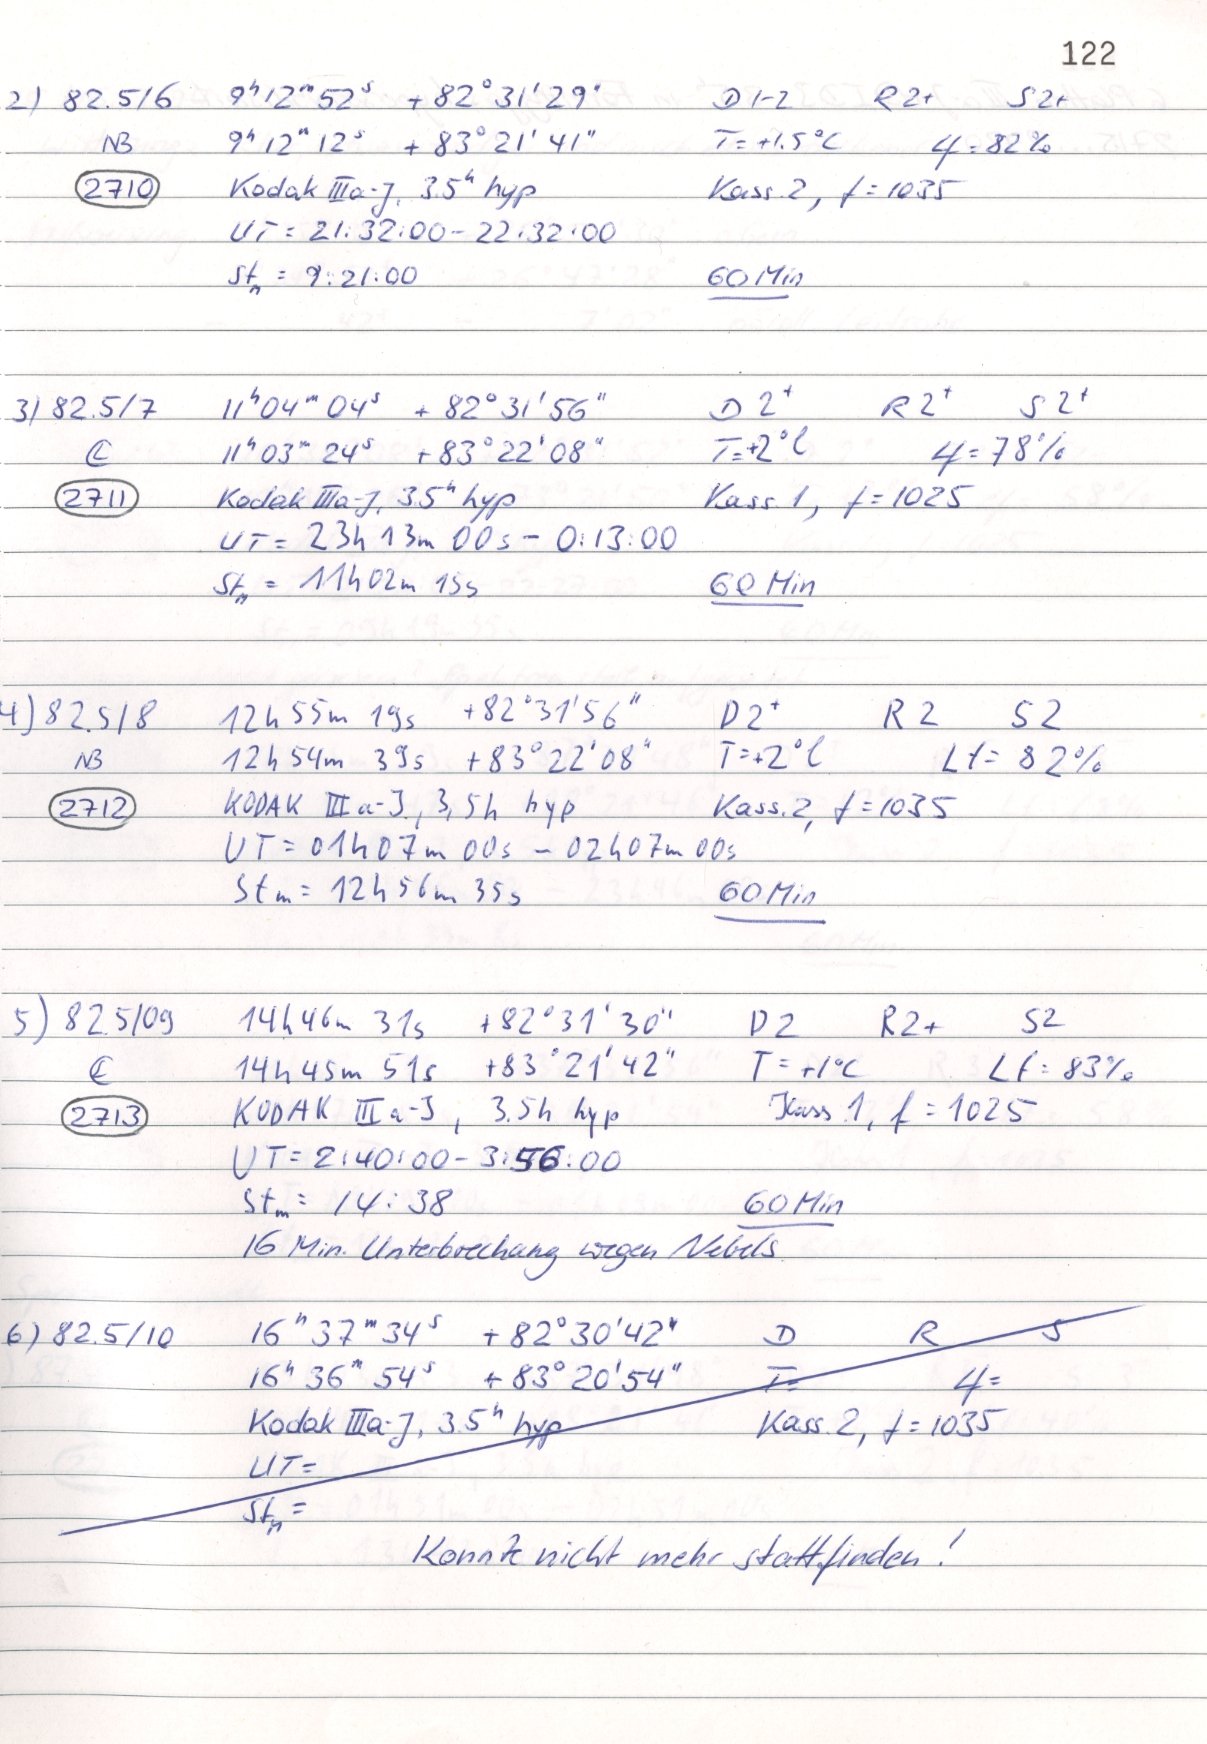 122
2) 82.5/6 9ʰ12ᵐ52ˢ +82°31'29" D1-2 R2+ S2+
NB 9ʰ12ᵐ12ˢ +83°21'41" T=+1.5°C Lf=82%
2710 Kodak IIIa-J, 3.5ʰ hyp Kass.2, f=1035
UT=21:32:00-22:32:00
Stₘ=9:21:00 60Min
3) 82.5/7 11ʰ04ᵐ04ˢ +82°31'56" D2⁺ R2⁺ S2⁺
11ʰ03ᵐ24ˢ +83°22'08" T=+2°C Lf=78%
2711 Kodak IIIa-J, 3.5ʰ hyp Kass.1, f=1025
UT=23h13m00s-0:13:00
Stₘ=11h02m15s 60 Min
4) 82.5/8 12h55m19s +82°31'56" D2⁺ R2 S2
NB 12h54m39s +83°22'08" T=+2°C Lf=82%
2712 KODAK IIIa-J, 3,5h hyp Kass.2, f=1035
UT=01h07m00s-02h07m00s
Stₘ=12h56m35s 60Min
5) 82.5/09 14h46m31s +82°31'30" D2 R2+ S2
14h45m51s +83°21'42" T=+1°C Lf=83%
2713 KODAK IIIa-J, 3.5h hyp Kass 1, f=1025
UT=2:40:00-3:56:00
Stₘ=14:38 60Min
16 Min. Unterbrechung wegen Nebels
6) 82.5/10 16ʰ37ᵐ34ˢ +82°30'42" D R S
16ʰ36ᵐ54ˢ +83°20'54" T= Lf=
Kodak IIIa-J, 3.5ʰ hyp Kass.2, f=1035
UT=
Stₘ=
Konnte nicht mehr stattfinden!